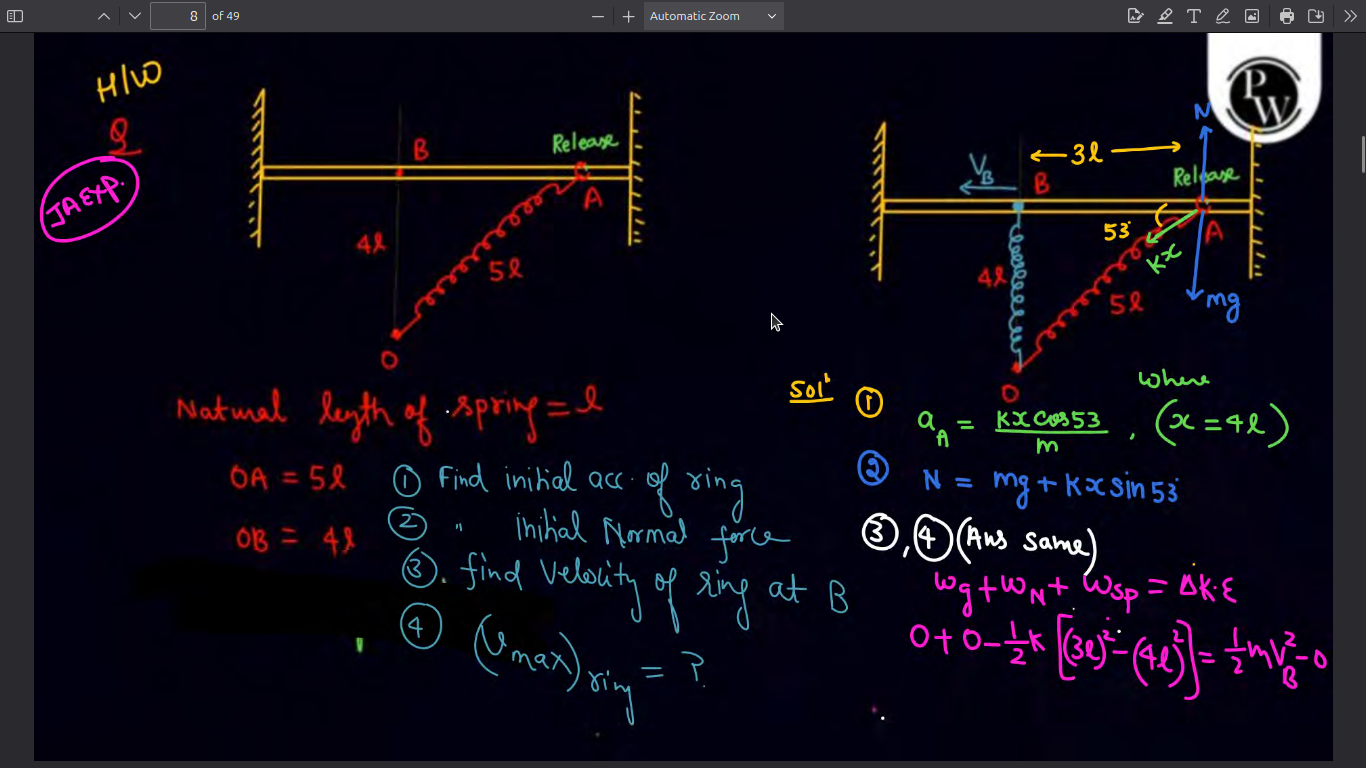 8 of 49
Automatic Zoom
H/W
Q
JA EXP.
B
Release
A
4l
5l
O
Natural legth of spring = l
OA = 5l
OB = 4l
① Find initial acc. of ring
② " initial Normal force
③ find Velocity of ring at B
④ (Vmax)ring = ?
PW
N
3l
VB
B
Release
53°
kx
A
4l
5l
mg
O
Solⁿ
① aA = kx cos53 / m , where (x = 4l)
② N = mg + kx sin53°
③, ④ (Ans same)
Wg + WN + Wsp = ΔK.E
0 + 0 - 1/2 k [(3l)² - (4l)²] = 1/2 m VB² - 0